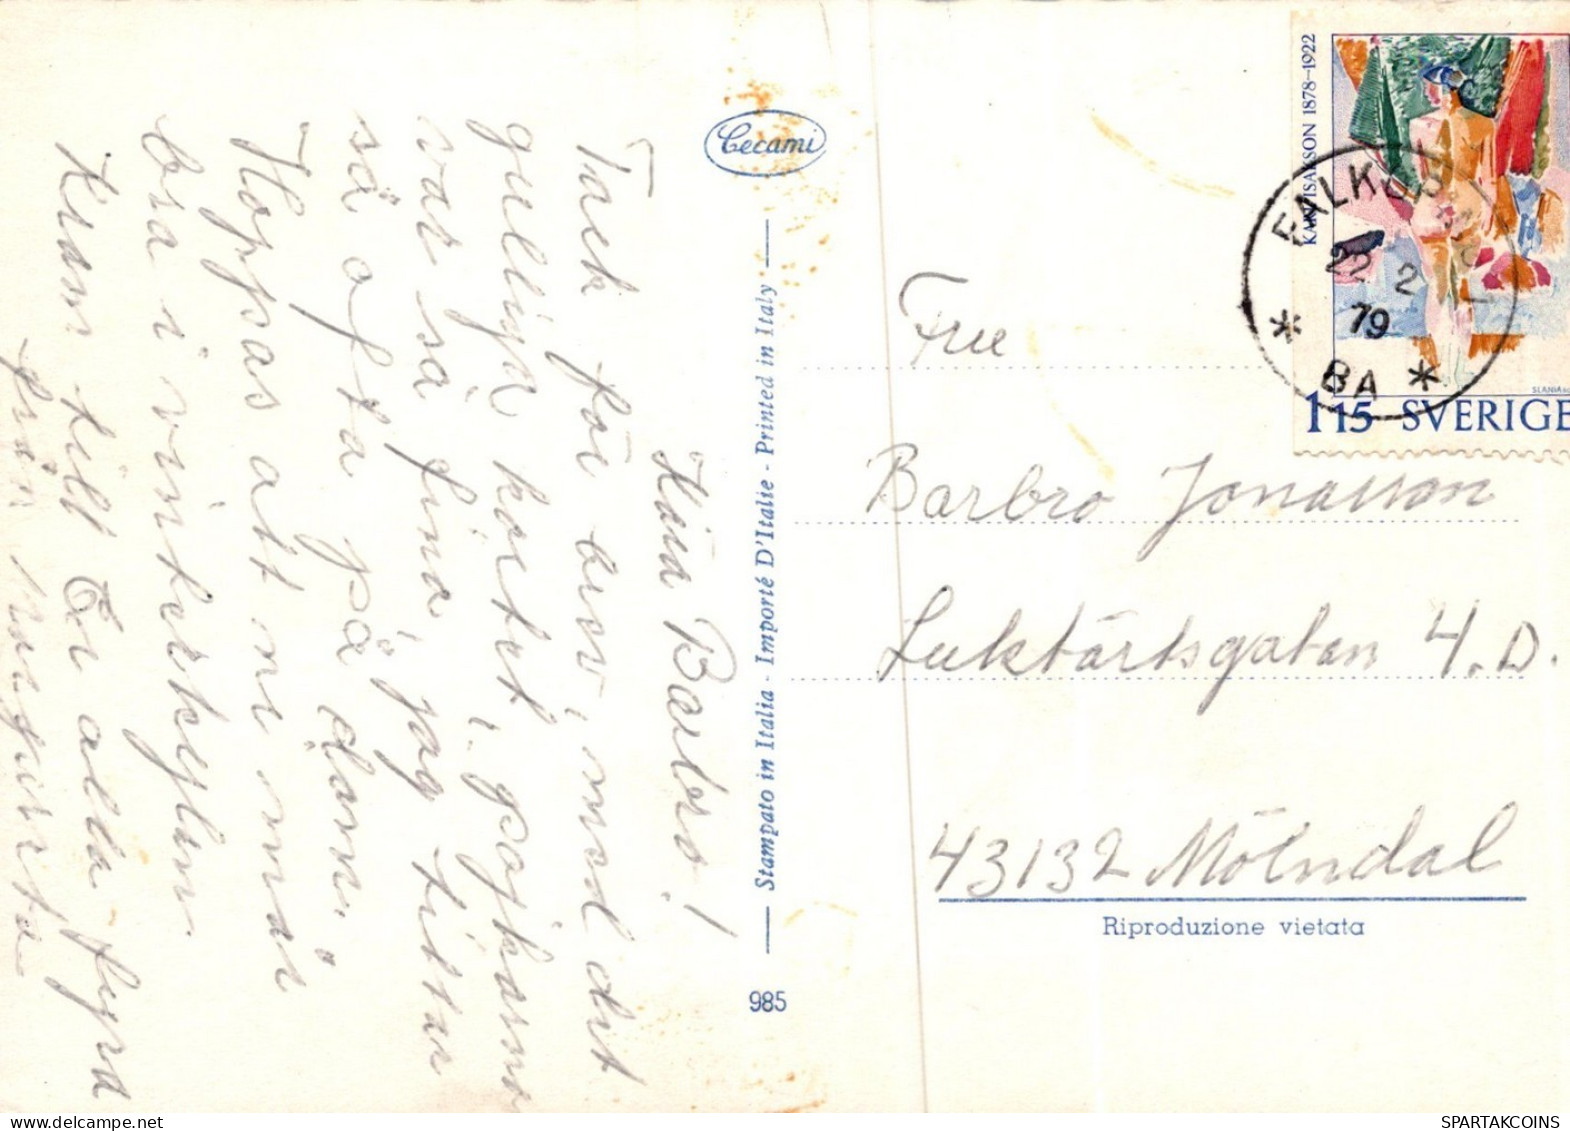 Kära Barbro!
Tack för brev, med det
gulliga kortet, pojkarna
var så fina, jag tittar
så ofta på dom.
Hoppas att ni mår
bra i vinterkylan.
Kram till Er alla fyra
från Margareta
Cecami
Stampato in Italia - Importé D'Italie - Printed in Italy
985
KARL ISAKSON 1878–1922
SLANIA SC
1 15 SVERIGE
FALKÖPING 1
22 2
79
* BA *
Fru
Barbro Jonasson
Luktärtsgatan 4.D.
43132 Mölndal
Riproduzione vietata
SPARTAKCOINS